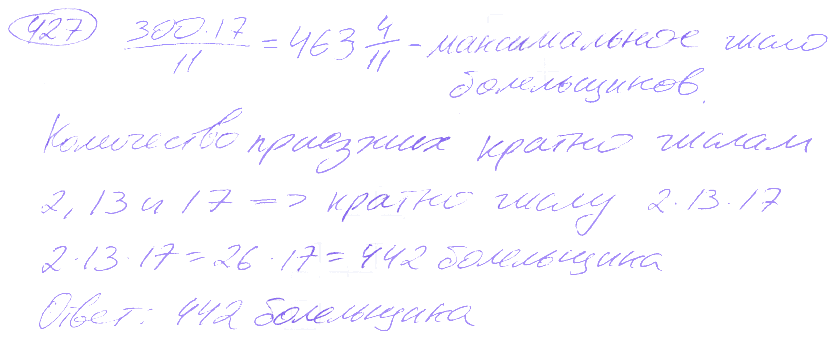 427 300·17/11 = 463 4/11 - максимальное число
болельщиков.
Количество приезжих кратно числам
2, 13 и 17 => кратно числу 2·13·17
2·13·17 = 26·17 = 442 болельщика
Ответ: 442 болельщика